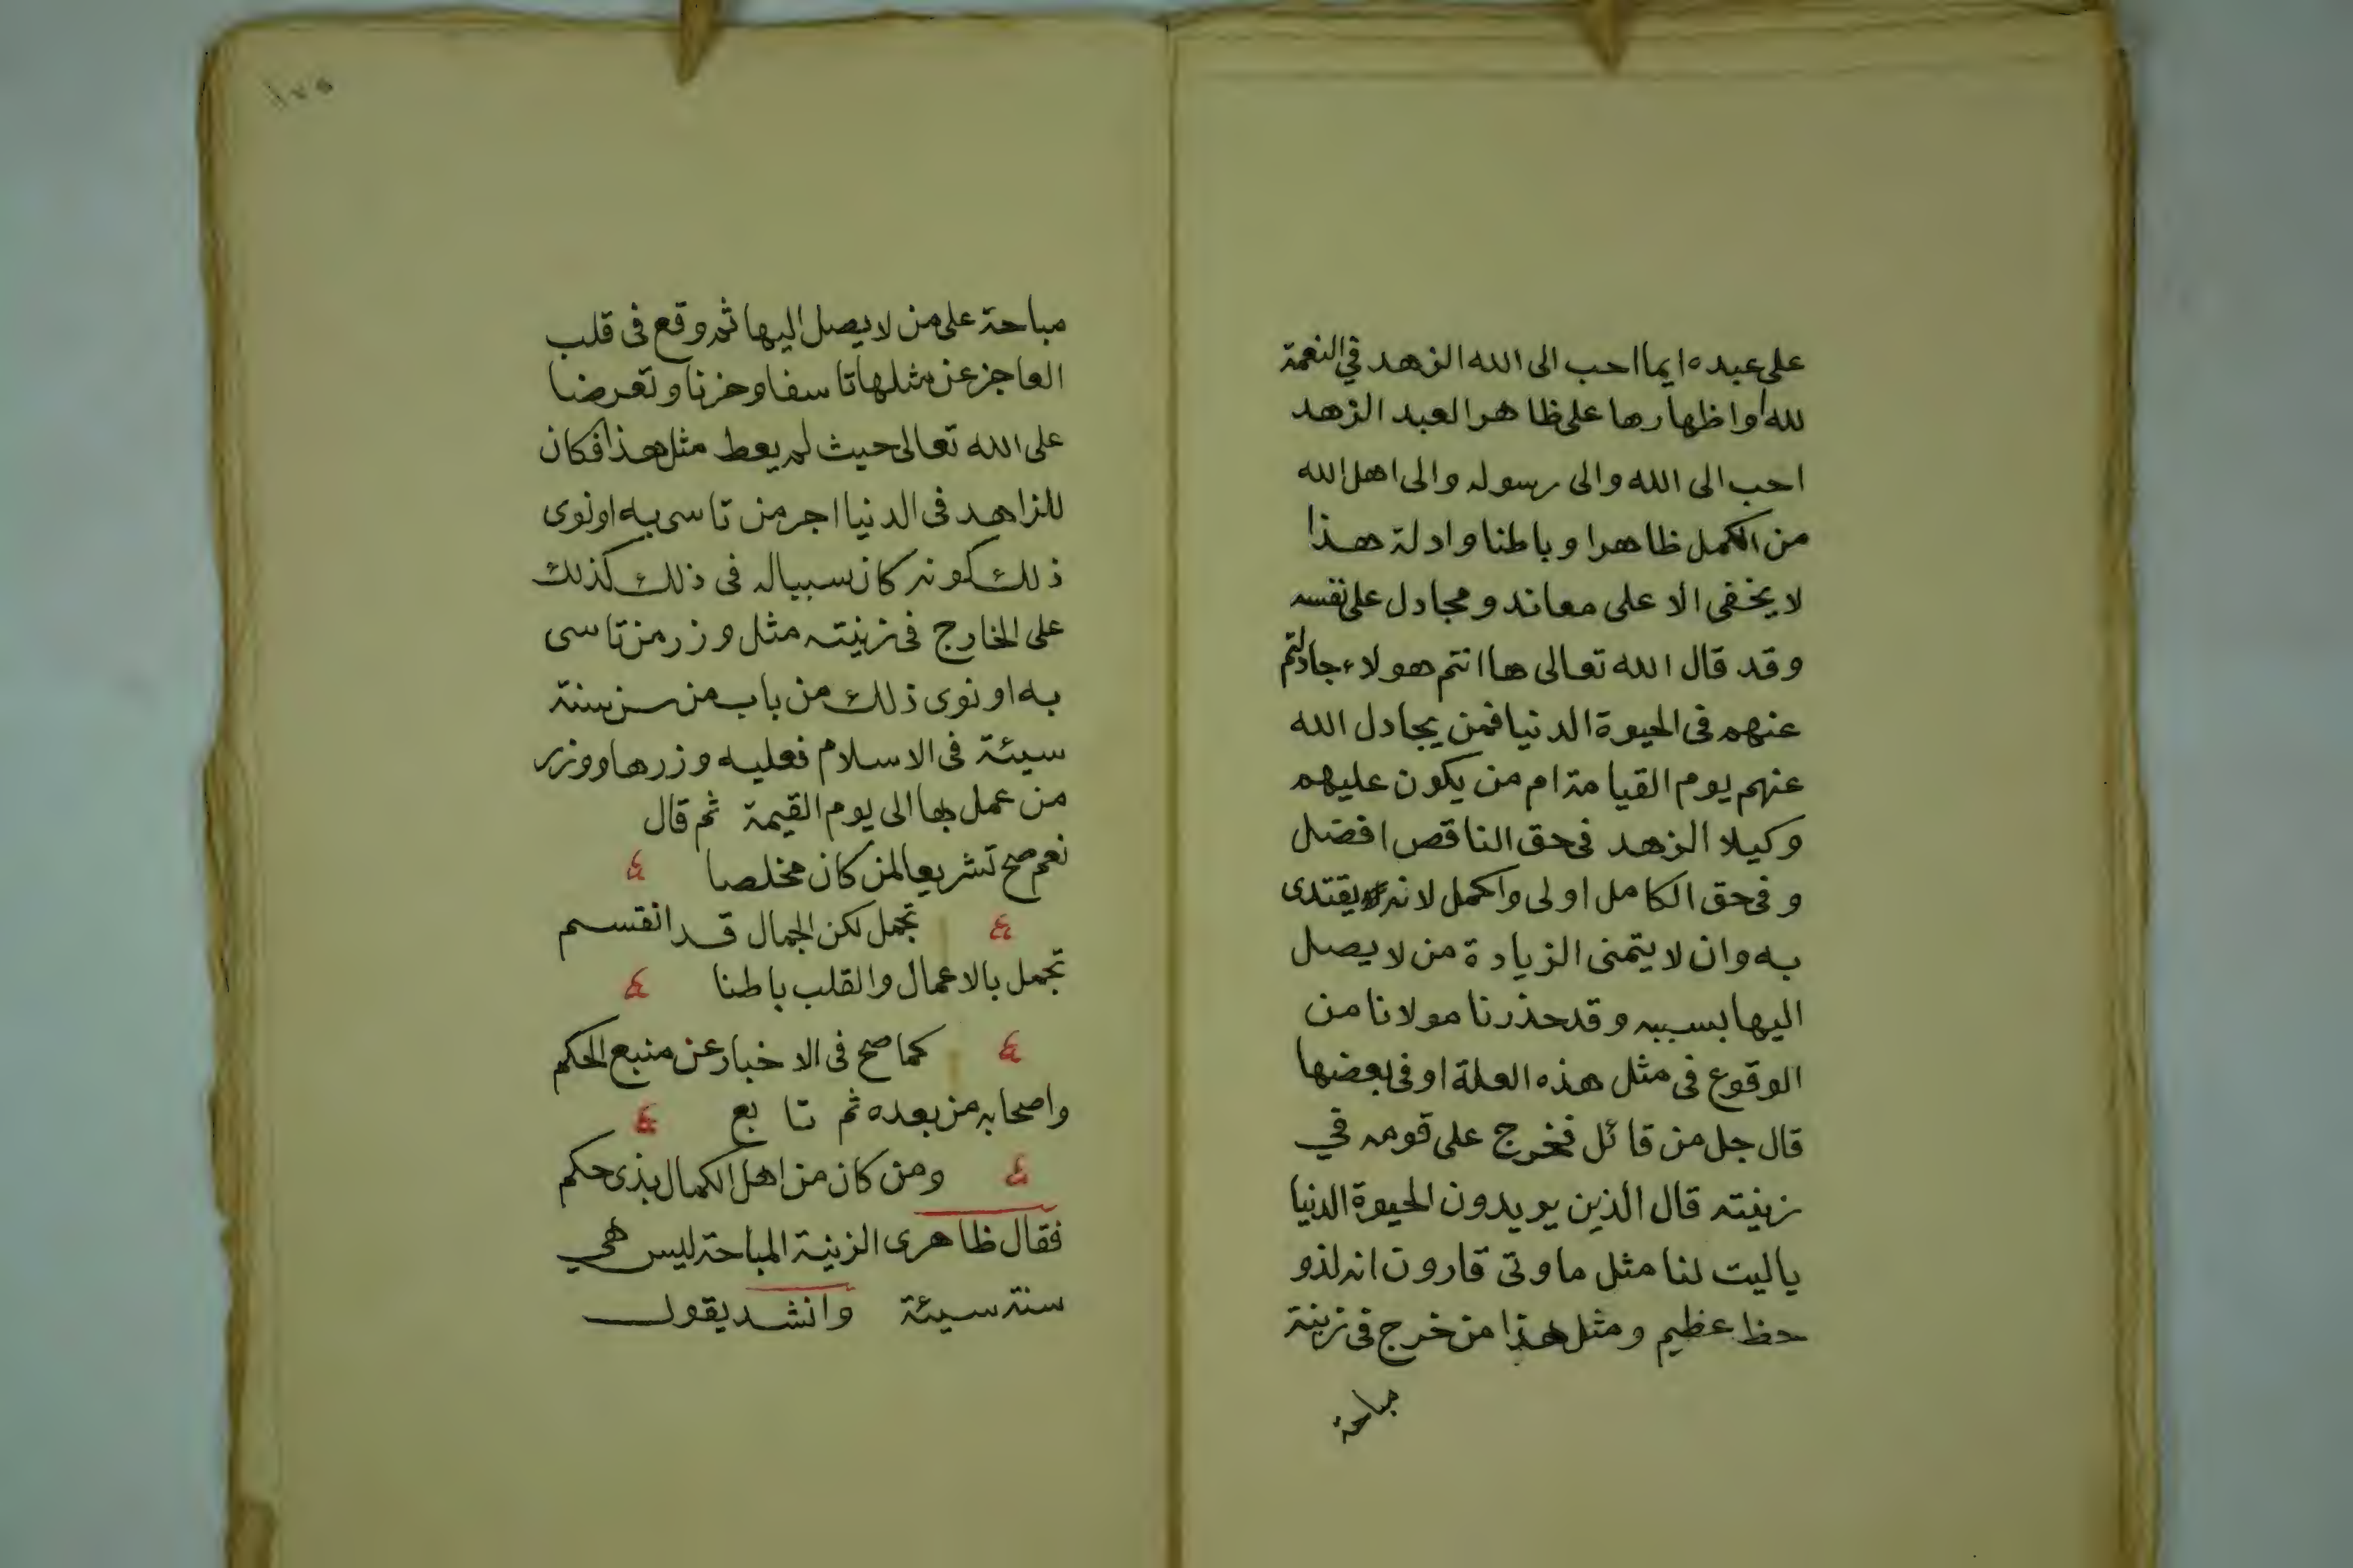 على عبده ايما احب الى الله الزهد في النعمة
لله او اظهارها على ظاهر العبد الزهد
احب الى الله والى رسوله والى اهل الله
من الكمل ظاهرا وباطنا وادلة هذا
لا يخفى الا على معاند ومجادل على نفسه
وقد قال الله تعالى ها انتم هولاء جادلتم
عنهم فى الحيوة الدنيا فمن يجادل الله
عنهم يوم القيامة ام من يكون عليهم
وكيلا الزهد فى حق الناقص افضل
وفى حق الكامل اولى واكمل لانه يقتدى
به وان لا يتمنى الزيادة من لا يصل
اليها بسببه وقد حذرنا مولانا من
الوقوع فى مثل هذه العلة او فى بعضها
قال جل من قائل فخرج على قومه في
زينته قال الذين يريدون الحيوة الدنيا
ياليت لنا مثل ما وتى قارون انه لذو
حظ عظيم ومثل هذا من خرج فى زينة
مباحة
١٧٥
مباحة على من لا يصل اليها ثم وقع فى قلب
العاجز عن مثلها تاسفا وحزنا وتعرضا
على الله تعالى حيث لم يعط مثل هذا فكان
للزاهد فى الدنيا اجر من تاسى به او نوى
ذلك كونه كان سببا له فى ذلك كذلك
على الخارج فى زينته مثل وزر من تاسى
به او نوى ذلك من باب من سن سنة
سيئة فى الاسلام فعليه وزرها ووزر
من عمل بها الى يوم القيمة ثم قال
نعم صح تشريعا لمن كان مخلصا
تجمل لكن الجمال قد انقسم
تجمل بالاعمال والقلب باطنا
كما صح فى الاخبار عن منبع الحكم
واصحابه من بعده ثم تا بع
ومن كان من اهل الكمال بذى حكم
فقال ظاهرى الزينة المباحة ليس هي
سنة سيئة وانشد يقول